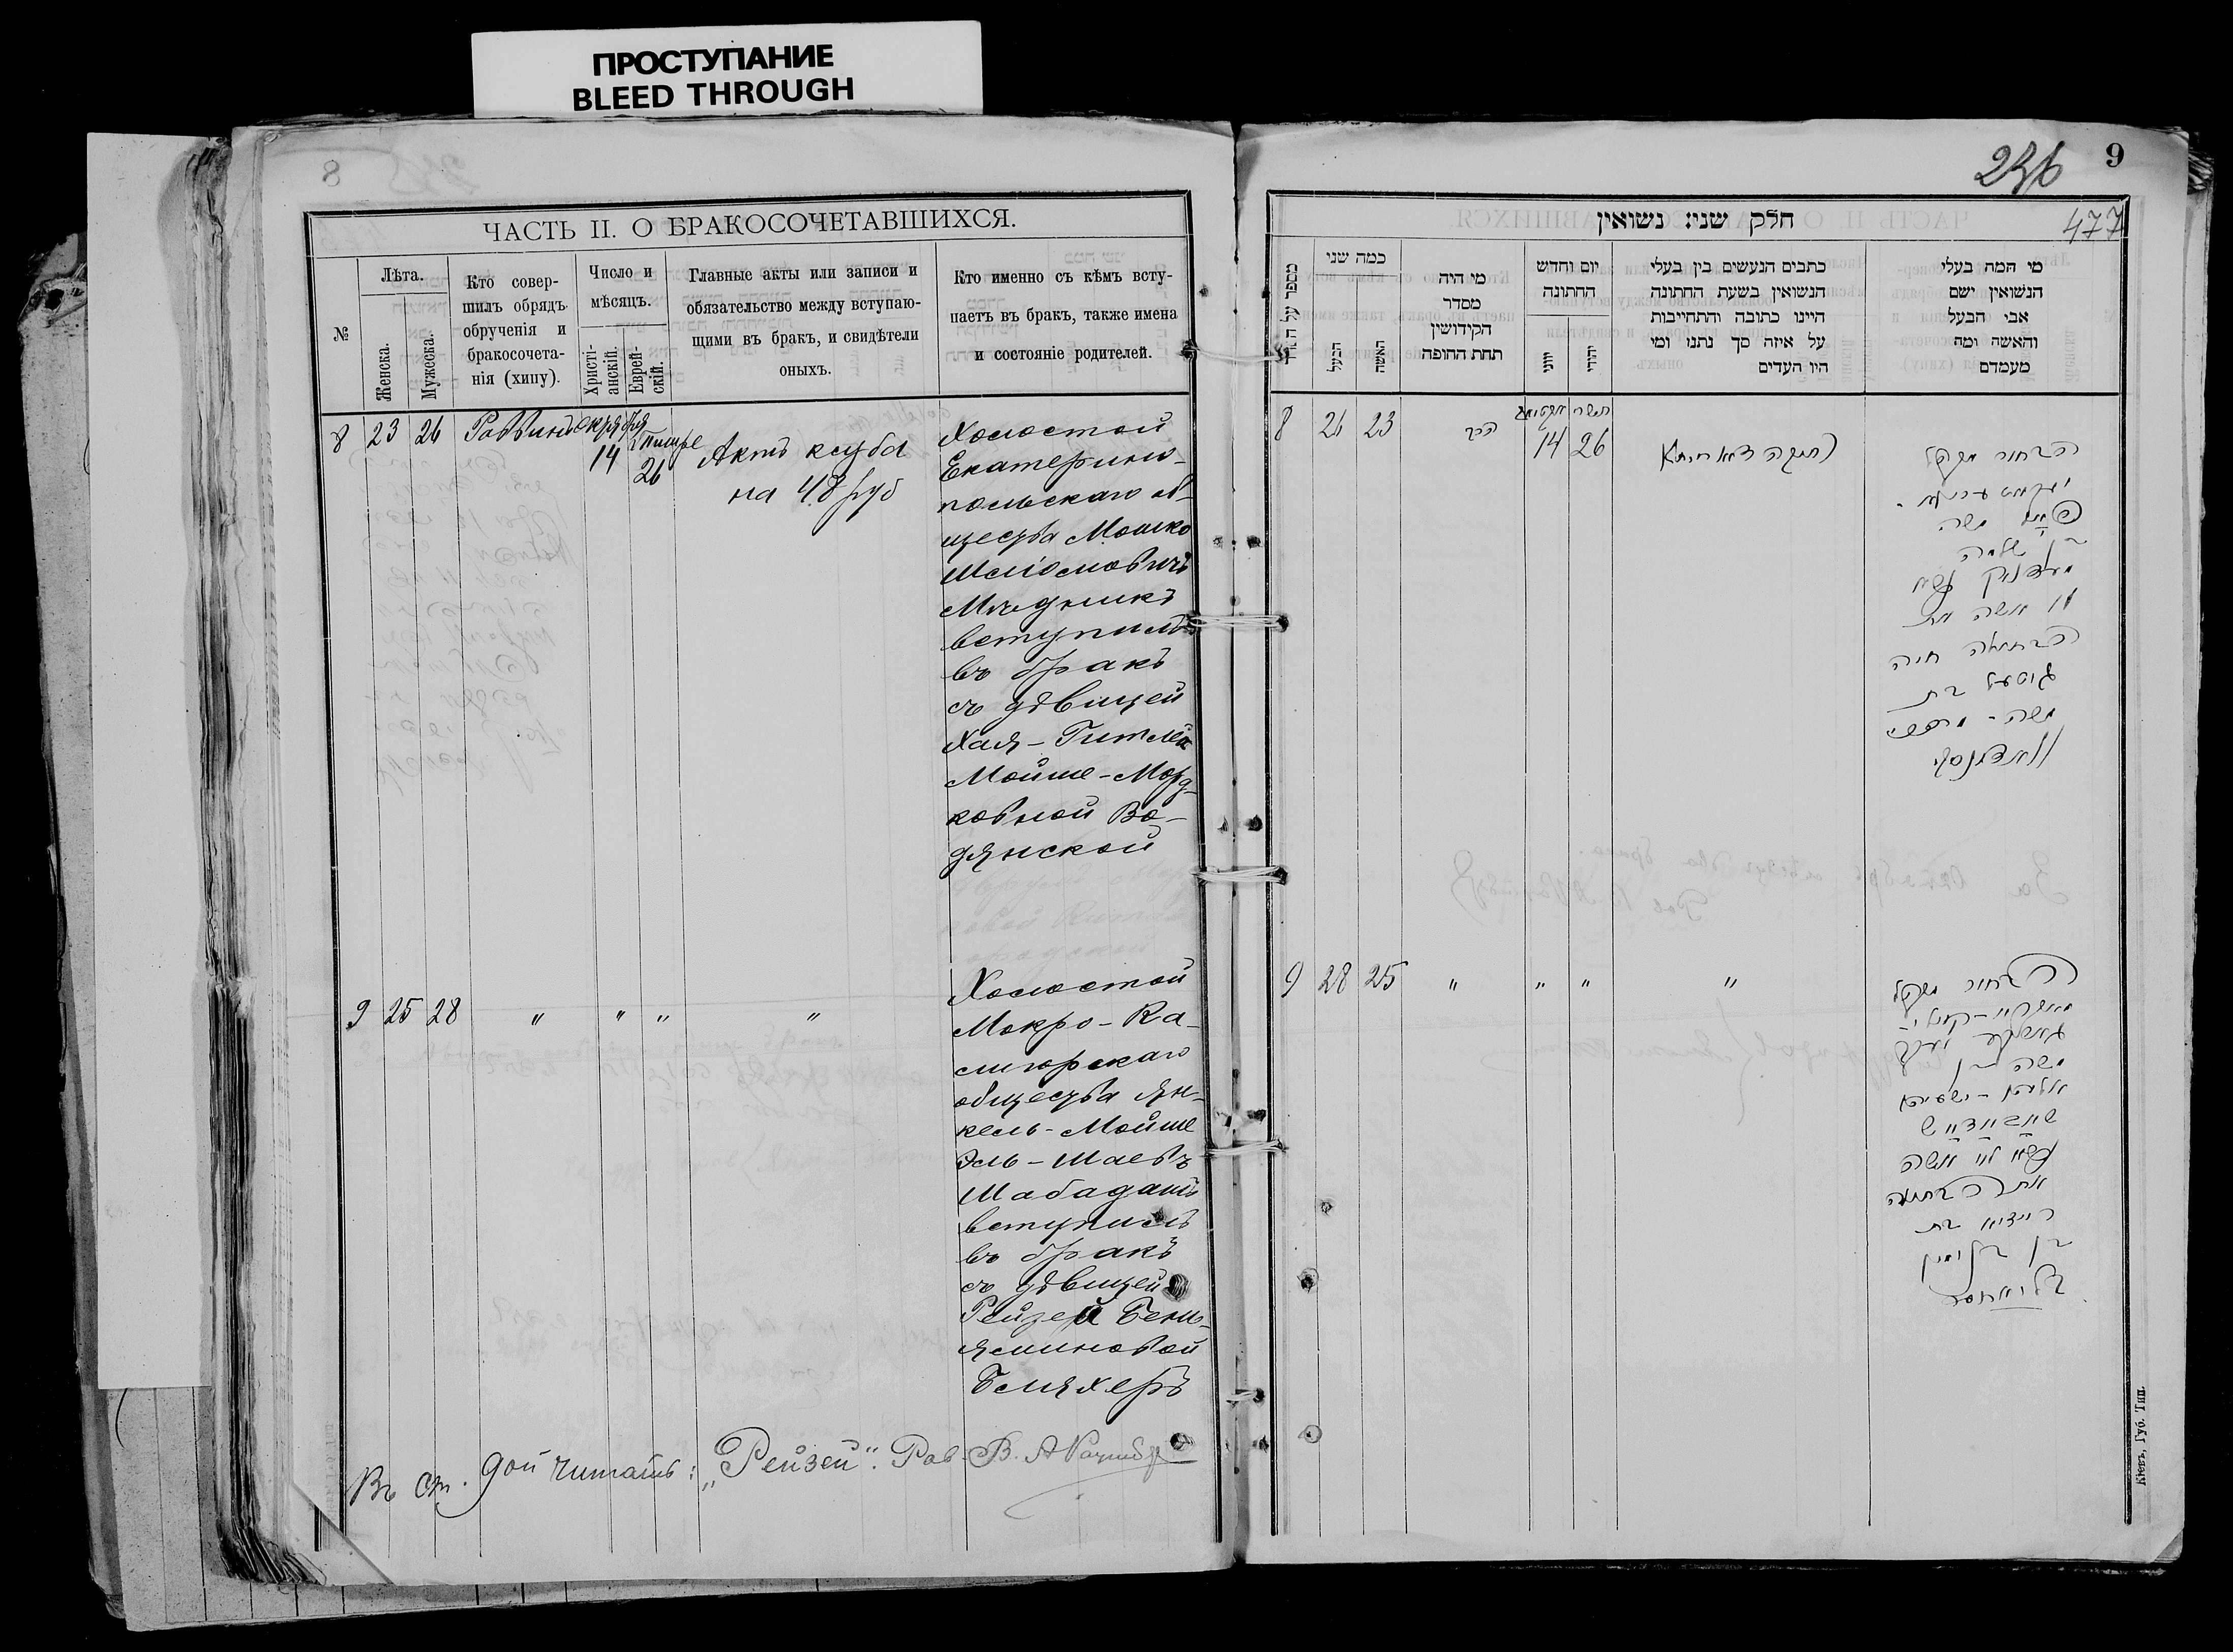 ПРОСТУПАНИЕ
BLEED THROUGH
8
ЧАСТЬ II. О БРАКОСОЧЕТАВШИХСЯ.
№
Лѣта.
Женска.
Мужеска.
Кто совер-
шилъ обрядъ
обрученія и
бракосочета-
нія (хипу).
Число и
мѣсяцъ.
Христі-
анскій.
Еврей-
скій.
Главные акты или записи и
обязательство между вступаю-
щими въ бракъ, и свидѣтели
оныхъ.
Кто именно съ кѣмъ всту-
паетъ въ бракъ, также имена
и состояніе родителей.
8 23 26 Раввинъ
14 26
Актъ ксуба
на 48 руб
Холостой
Екатерино-
польскаго об-
щества Мошко
Шліомовичъ
вступилъ
въ бракъ
съ дѣвицей
Хая-Гитлей
Мойше-Морд-
ковной Во-
дянской
9 25 28 " " " "
Холостой
Мокро-Ка-
лигорскаго
общества Ян-
кель-Мойше
Эль-Шаевъ
Шабадашъ
вступилъ
въ бракъ
съ дѣвицей
Рейзей Бень-
яминовой
Бляхеръ
Въ ст. 9ой читать: „Рейзей“. Рав. В. А
236 9
477
חלק שני: נשואין
מספר על הסדר
כמה שני
הבעל
האשה
מי היה
מסדר
הקידושין
תחת החופה
יום וחדש
החתונה
יווני
יהודי
כתבים הנעשים בין בעלי
הנשואין בשעת החתונה
היינו כתובה והתחייבות
על איזה סך נתנו ומי
היו העדים
מי המה בעלי
הנשואין ושם
אבי הבעל
והאשה ומה
מעמדם
8 26 23 הרב 14 26
הבחור מקהל
משה
בן שלמה
נשא
לו אשה את
הבתולה חיה
גיטעל בת
9 28 25 " " " "
הבחור מקהל
משה בן
נשא לו אשה
את הבתולה
רייזא בת
Кіевъ, Губ. Тип.